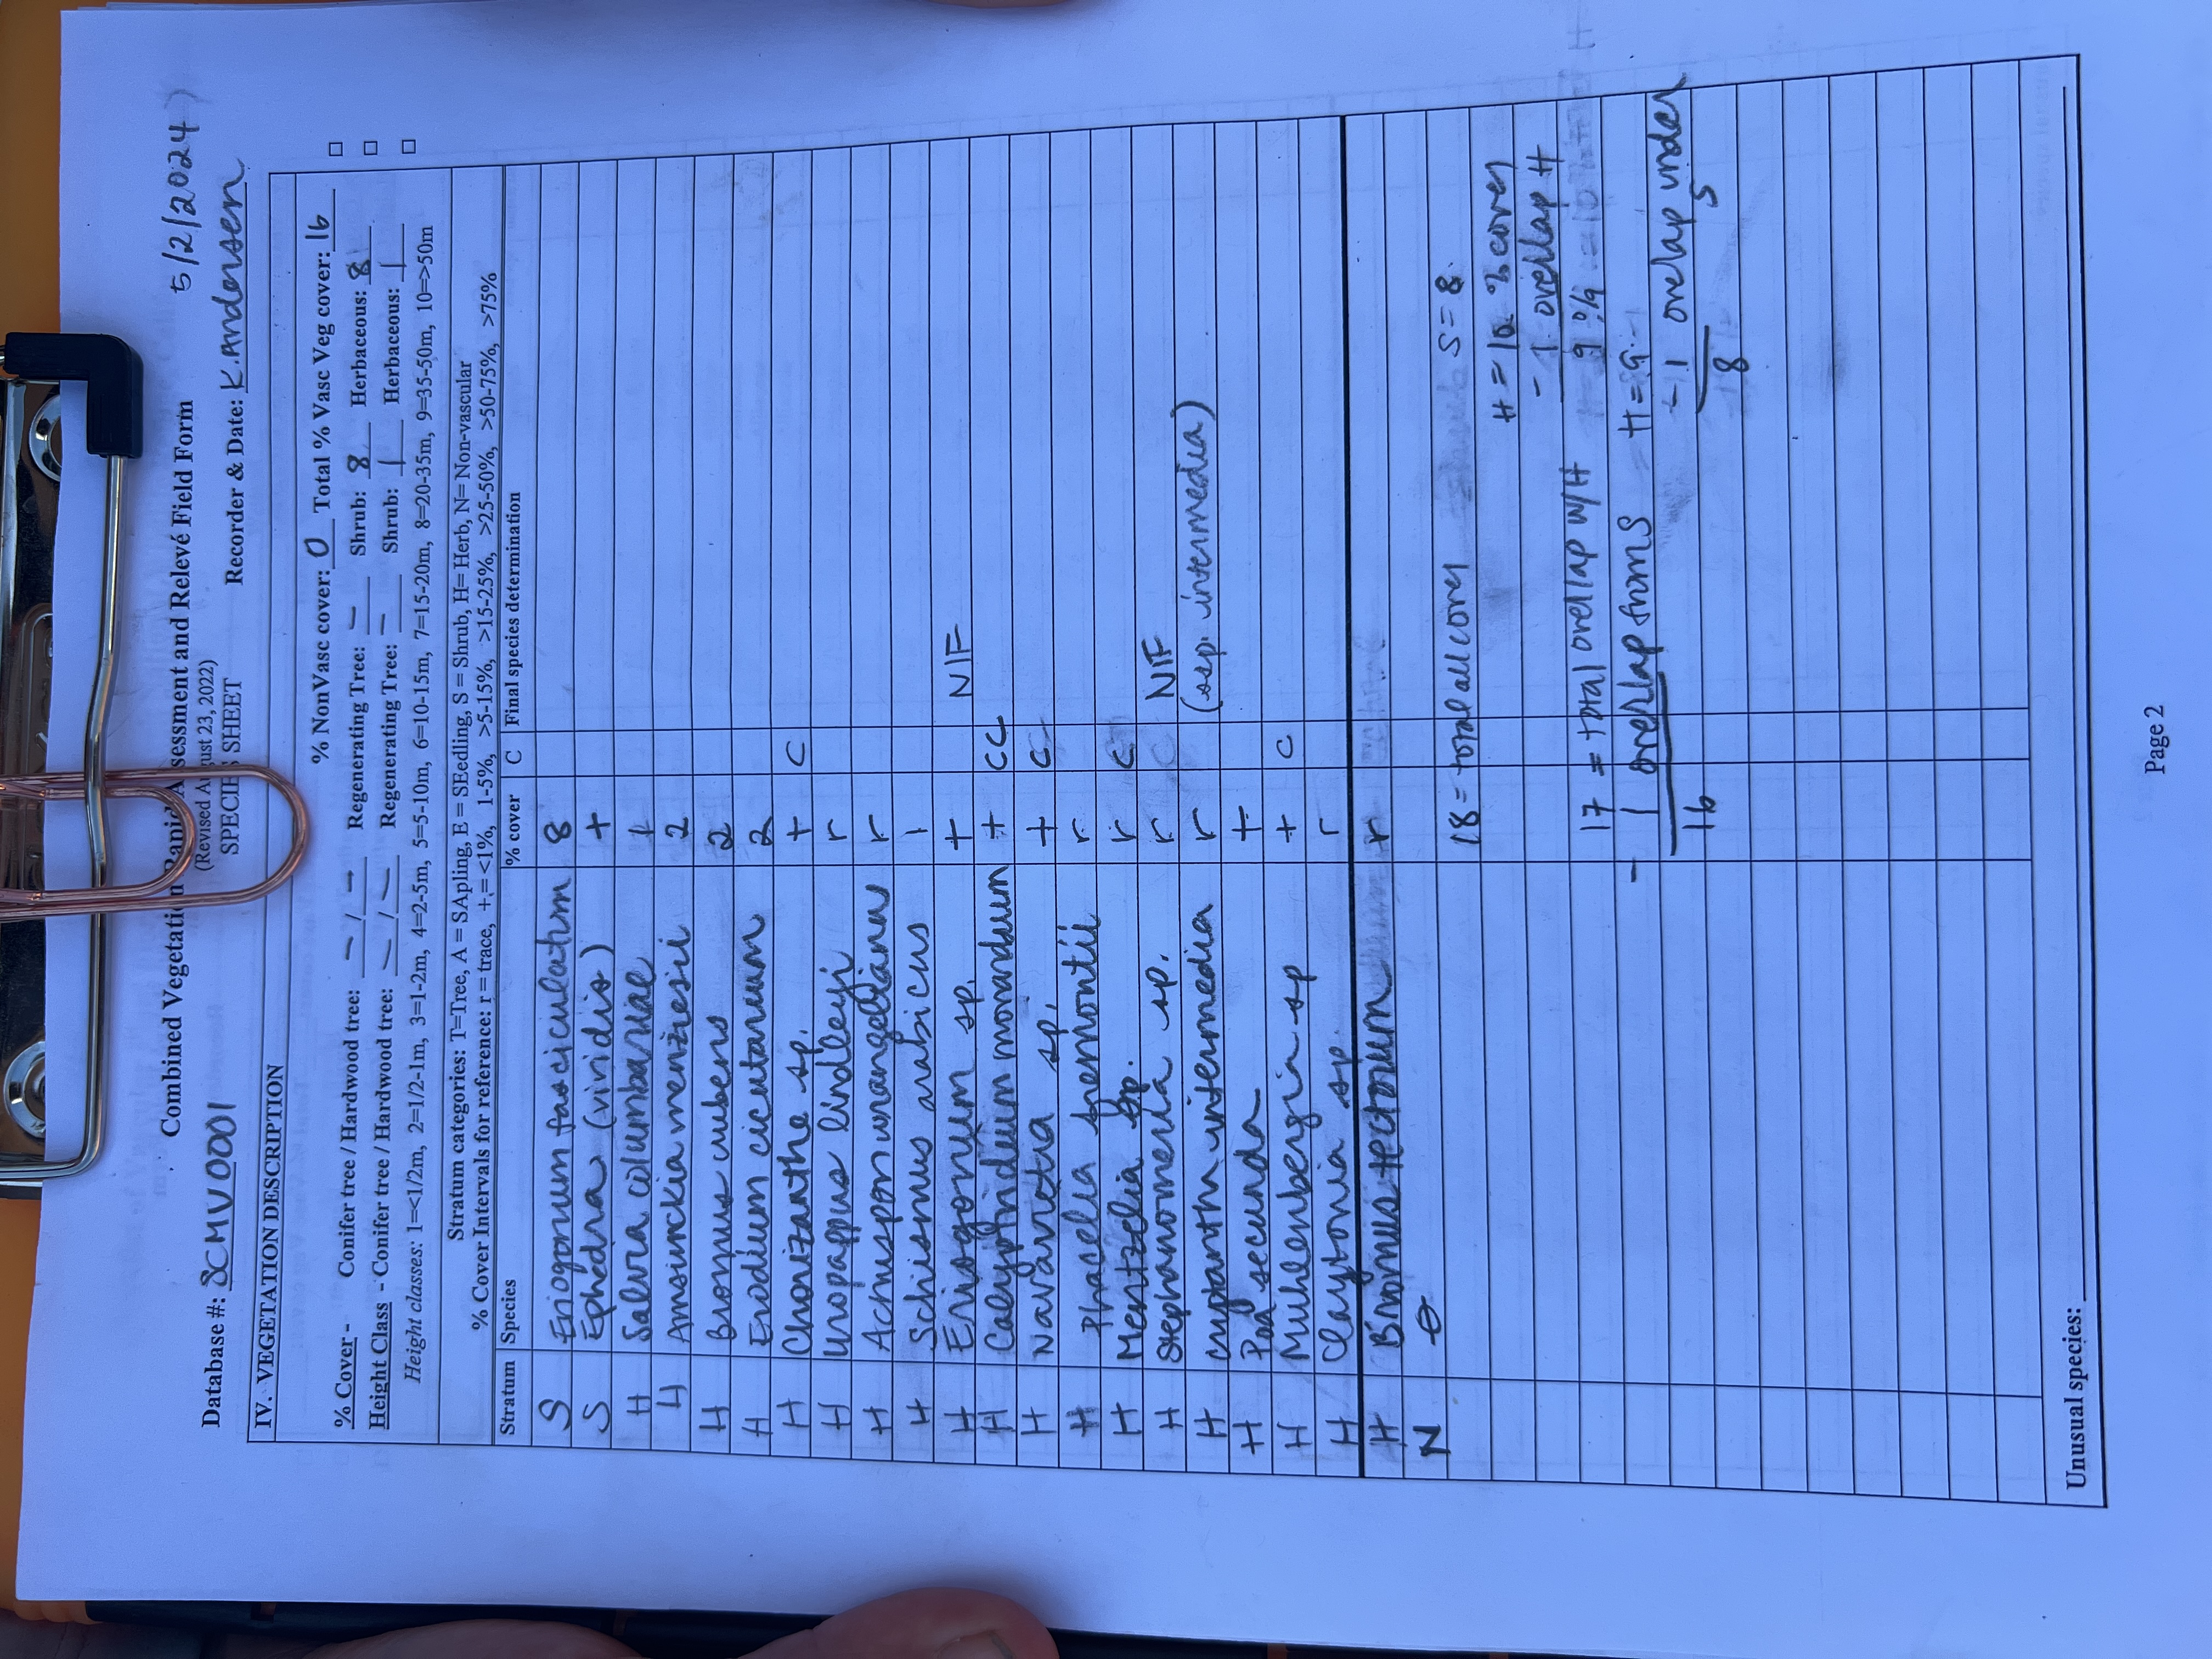 Combined Vegetation Rapid Assessment and Relevé Field Form
(Revised August 23, 2022)
5/2/2024
SPECIES SHEET
Database #: SCMV0001 Recorder & Date: K. Andersen
IV. VEGETATION DESCRIPTION
% NonVasc cover: 0 Total % Vasc Veg cover: 16
% Cover - Conifer tree / Hardwood tree: — / — Regenerating Tree: — Shrub: 8 Herbaceous: 8
Height Class - Conifer tree / Hardwood tree: — / — Regenerating Tree: — Shrub: 1 Herbaceous: 1
Height classes: 1=<1/2m, 2=1/2-1m, 3=1-2m, 4=2-5m, 5=5-10m, 6=10-15m, 7=15-20m, 8=20-35m, 9=35-50m, 10=>50m
Stratum categories: T=Tree, A = SApling, E = SEedling, S = Shrub, H= Herb, N= Non-vascular
% Cover Intervals for reference: r = trace, + = <1%, 1-5%, >5-15%, >15-25%, >25-50%, >50-75%, >75%
Stratum Species % cover C Final species determination
S Eriogonum fasciculatum 8
S Ephedra (viridis) +
H Salvia columbariae +
H Amsinckia menziesii 2
H Bromus rubens 2
H Erodium cicutarium 2
H Chorizanthe sp. + C
H Uropappus lindleyi r
H Acmispon wrangelianus r
H Schismus arabicus 1
H Eriogonum sp. + NIF
H Calyptridium monandrum + CC
H Navarretia sp. + C
H Phacelia fremontii r
H Mentzelia sp. r C
H Stephanomeria sp. r NIF
H Cryptantha intermedia r (ssp. intermedia)
H Poa secunda +
H Muhlenbergia sp + C
H Claytonia sp. r
H Bromus tectorum r
N ∅
18 = total all cover S = 8
H = 10 % cover
- 1 overlap H
9 %
17 = total overlap w/H
- 1 overlap from S
16
H = 9
- 1 overlap under S
8
Unusual species:
Page 2